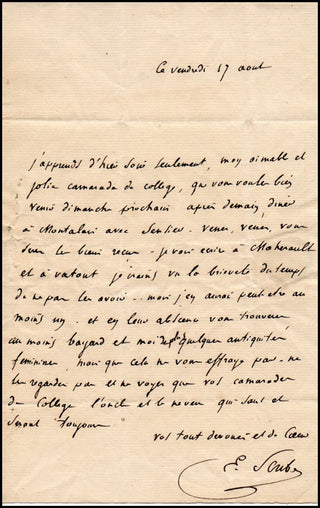 Ce vendredi 17 aout
j'apprends d'hier soir seulement, mon aimable et
jolie camarade de college, que vous voulez bien
venir dimanche prochain après demain, diner
à Montalais avec venez, venez, vous
serez le bien recu - je vais ecrire à Maherault
et à vatout je crains vu la brieveté du temps
de ne pas les avoir - mais j'en aurai peut etre au
moins un - et en leur absence vous trouverez
au moins bayard et moi de plus quelques antiquités
feminines, mais que cela ne vous effraye pas - ne
les regardez pas et ne voyez que vos camarades
de college l'oncle et le neveu qui sont et
seront toujours
vos tout devoués et de Coeur
E. Scribe